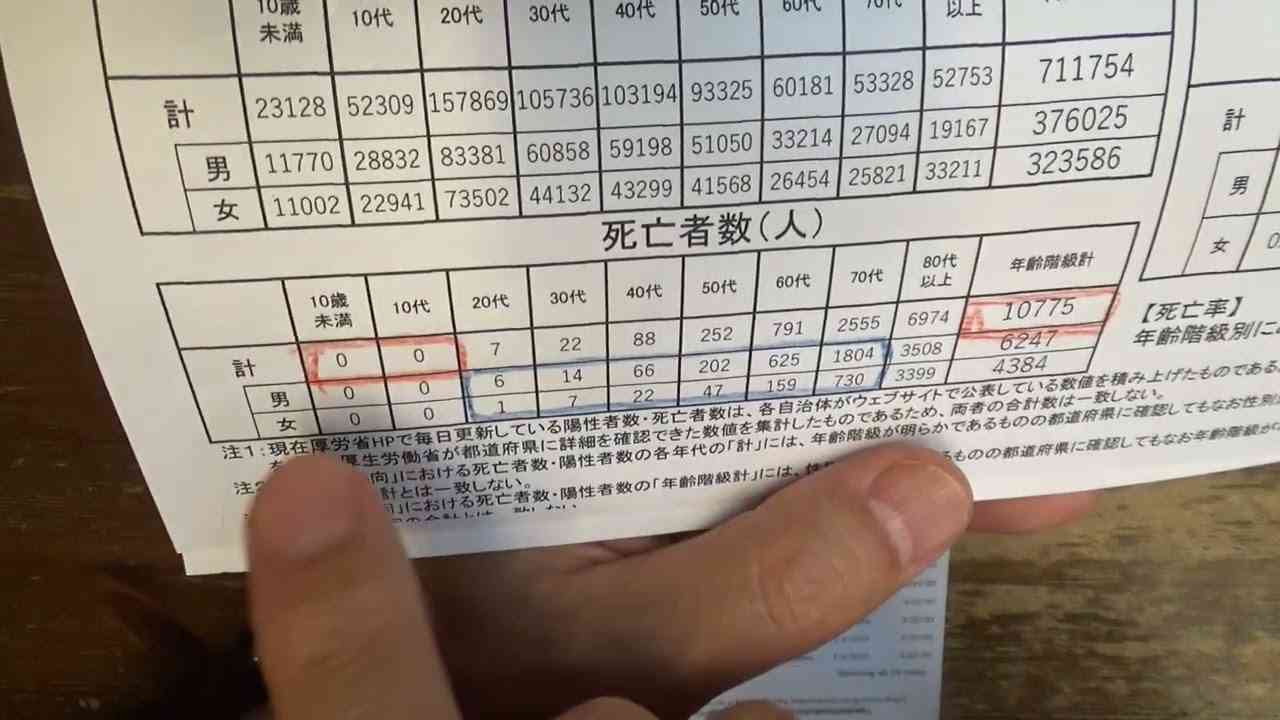 10歳 10代 20代 30代 40代 50代 60代 70代 以上
未満
計 23128 52309 157869 105736 103194 93325 60181 53328 52753 711754
男 11770 28832 83381 60858 59198 51050 33214 27094 19167 376025
女 11002 22941 73502 44132 43299 41568 26454 25821 33211 323586
死亡者数(人)
10歳未満 10代 20代 30代 40代 50代 60代 70代 80代以上 年齢階級計
計 0 0 7 22 88 252 791 2555 6974 10775
男 0 0 6 14 66 202 625 1804 3508 6247
女 0 0 1 7 22 47 159 730 3399 4384
注1:現在厚労省HPで毎日更新している陽性者数・死亡者数は、各自治体がウェブサイトで公表している数値を積み上げたものである
厚生労働省が都道府県に詳細を確認できた数値を集計したものであるため、両者の合計数は一致しない。
向」における死亡者数・陽性者数の各年代の「計」には、年齢階級が明らかであるものの都道府県に確認してもなお性別
計とは一致しない。
」における死亡者数・陽性者数の「年齢階級計」には、
るものの都道府県に確認してもなお年齢階級が
計
男
女
【死亡率】
年齢階級別に